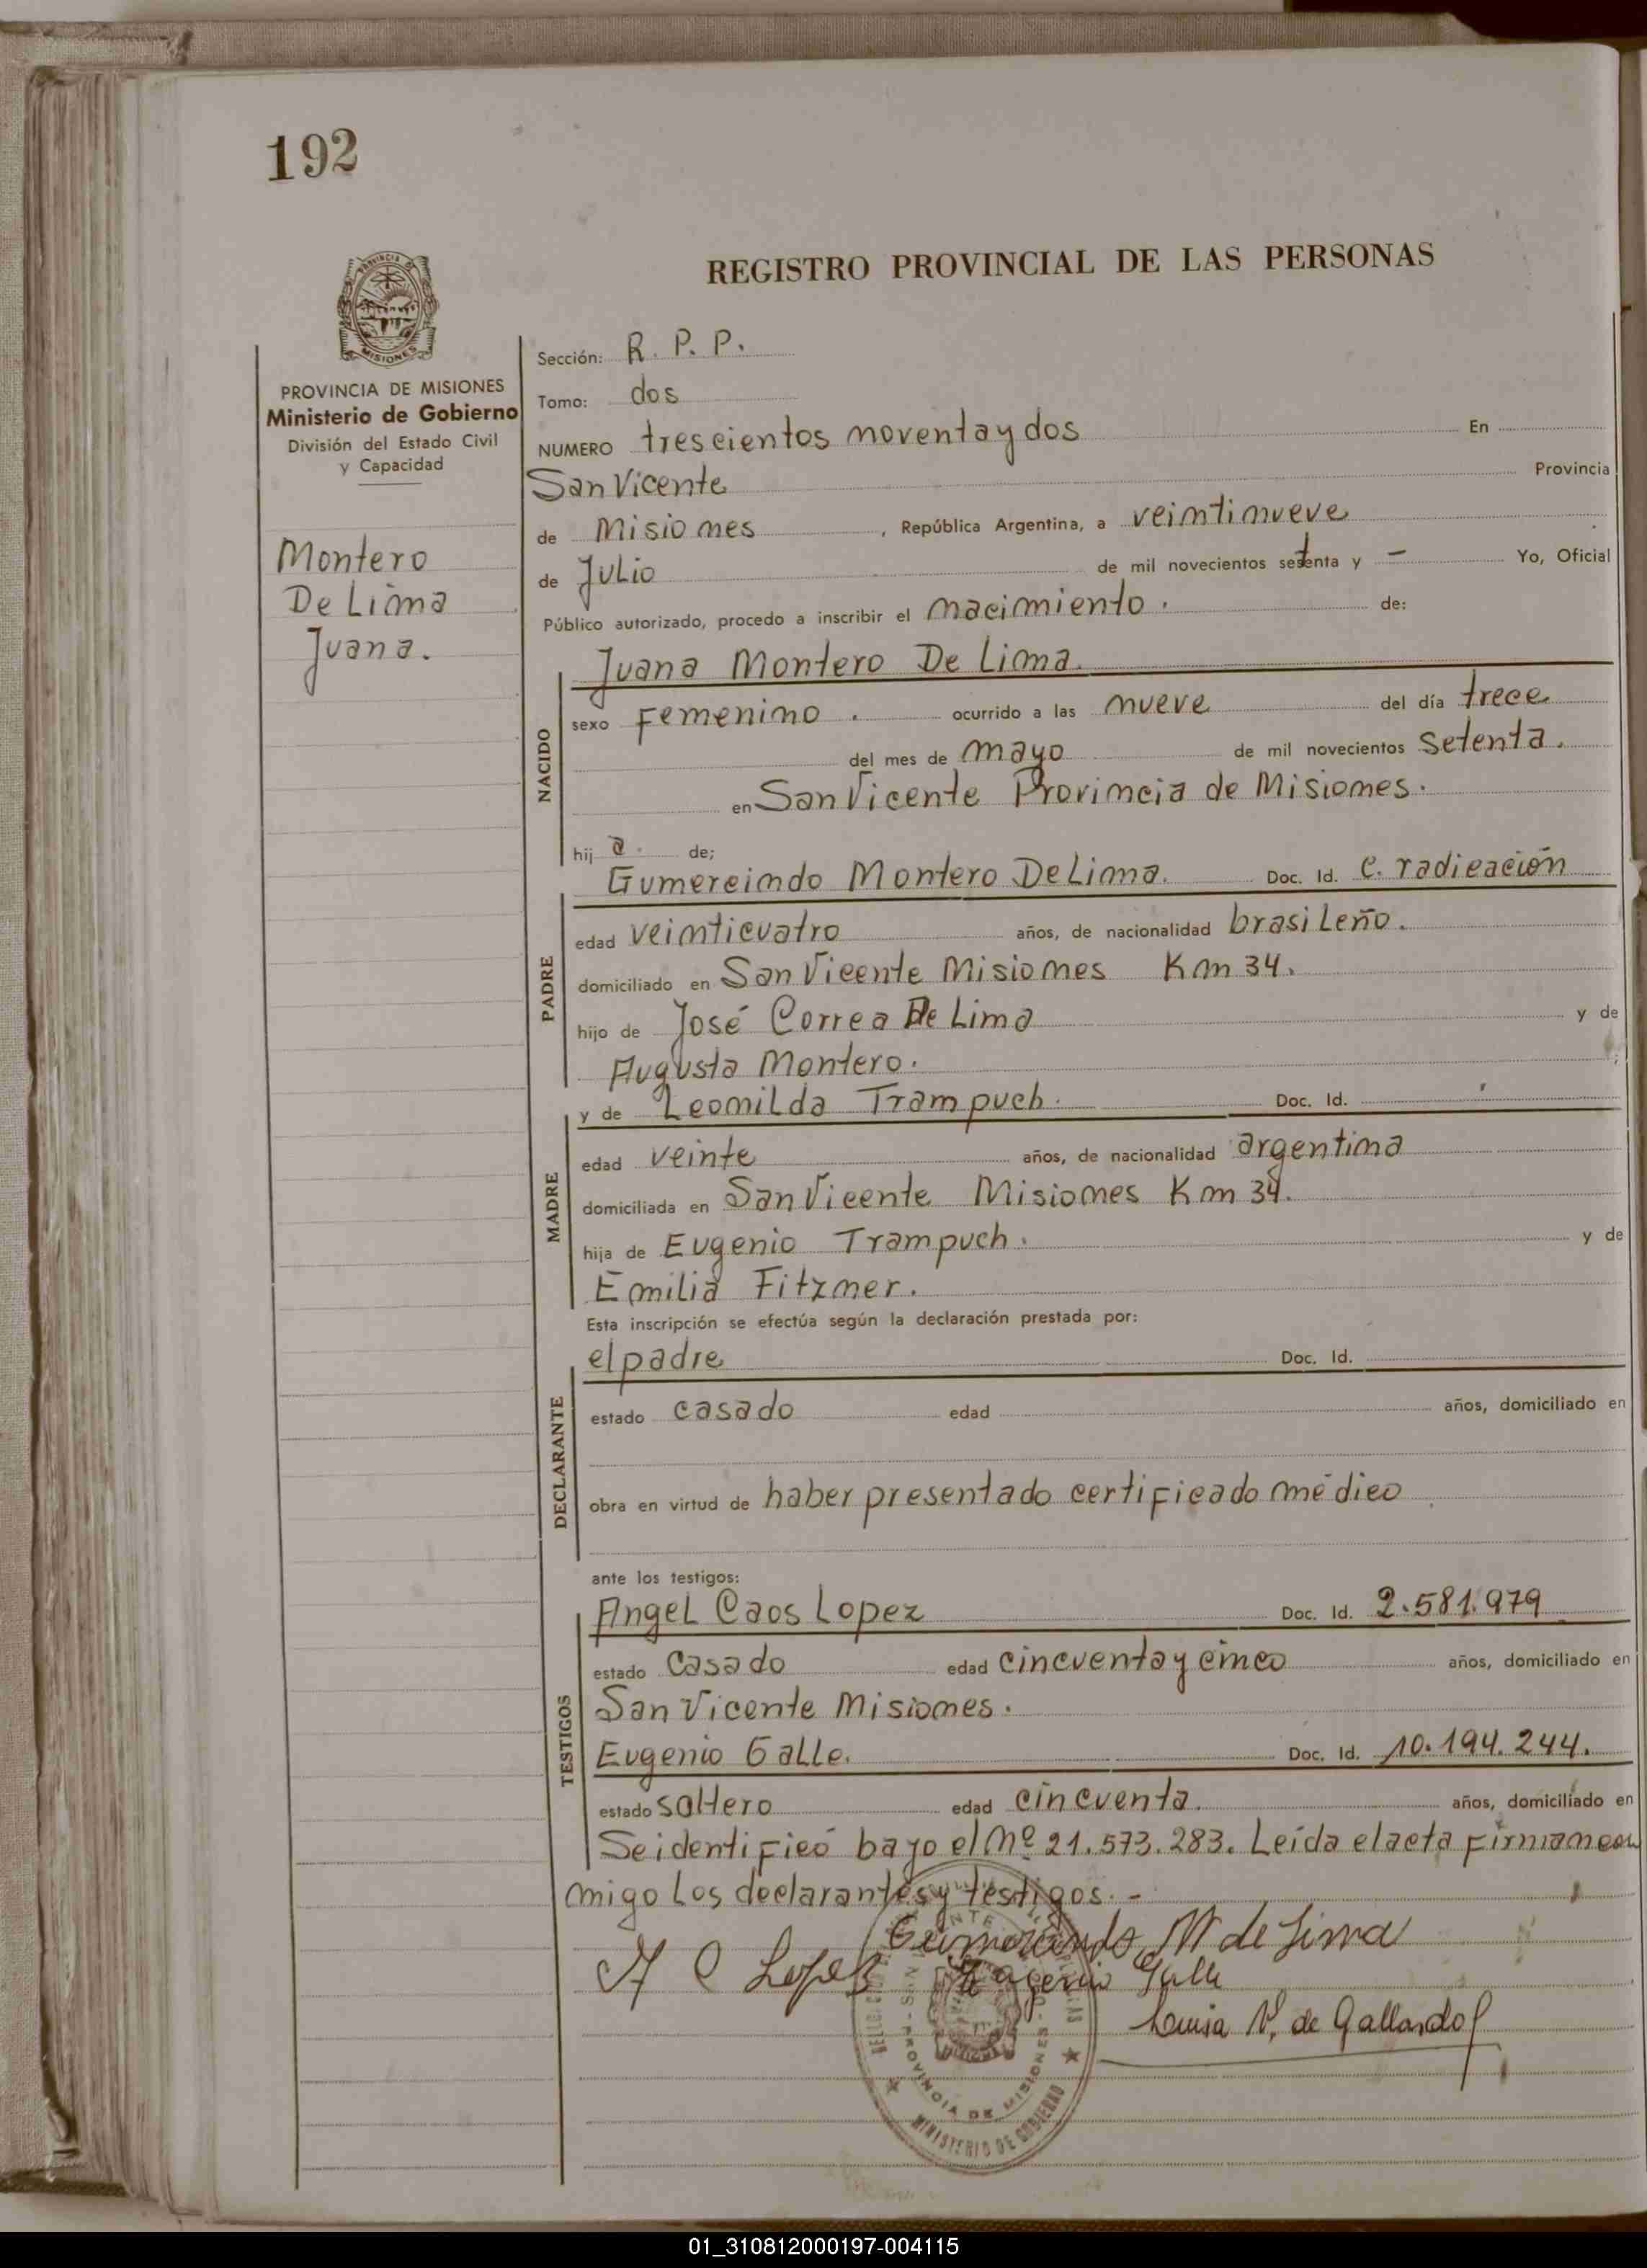 192
REGISTRO PROVINCIAL DE LAS PERSONAS
PROVINCIA DE MISIONES
Ministerio de Gobierno
División del Estado Civil
y Capacidad
Montero
De Lima
Juana.
Sección: R. P. P.
Tomo: dos
NUMERO trescientos noventa y dos En
San Vicente Provincia
de Misiones , República Argentina, a veintinueve
de Julio de mil novecientos setenta y — Yo, Oficial
Público autorizado, procedo a inscribir el nacimiento. de:
Juana Montero De Lima.
NACIDO
sexo Femenino. ocurrido a las nueve del día trece
del mes de mayo de mil novecientos setenta.
en San Vicente Provincia de Misiones.
hij a. de;
Gumercindo Montero De Lima. Doc. Id. C. radicación
PADRE
edad veinticuatro años, de nacionalidad brasileño.
domiciliado en San Vicente Misiones Km 34.
hijo de José Correa De Lima y de
Augusta Montero.
y de Leonilda Trampuch. Doc. Id.
MADRE
edad veinte años, de nacionalidad argentina
domiciliada en San Vicente Misiones Km 34.
hija de Eugenio Trampuch. y de
Emilia Fitzner.
Esta inscripción se efectúa según la declaración prestada por:
el padre Doc. Id.
DECLARANTE
estado casado edad años, domiciliado en
obra en virtud de haber presentado certificado médico
ante los testigos:
Angel Caos Lopez Doc. Id. 2.581.979
TESTIGOS
estado Casado edad cincuenta y cinco años, domiciliado en
San Vicente Misiones.
Eugenio Galle. Doc. Id. 10.194.244.
estado soltero edad cincuenta. años, domiciliado en
Se identificó bajo el Nº 21.573.283. Leída el acta firman con
migo los declarantes y testigos.-
Gumercindo M de Lima
A C Lopez Eugenio Galle
Luisa V. de Gallardo
PROVINCIA DE MISIONES
MINISTERIO DE GOBIERNO
01_310812000197-004115